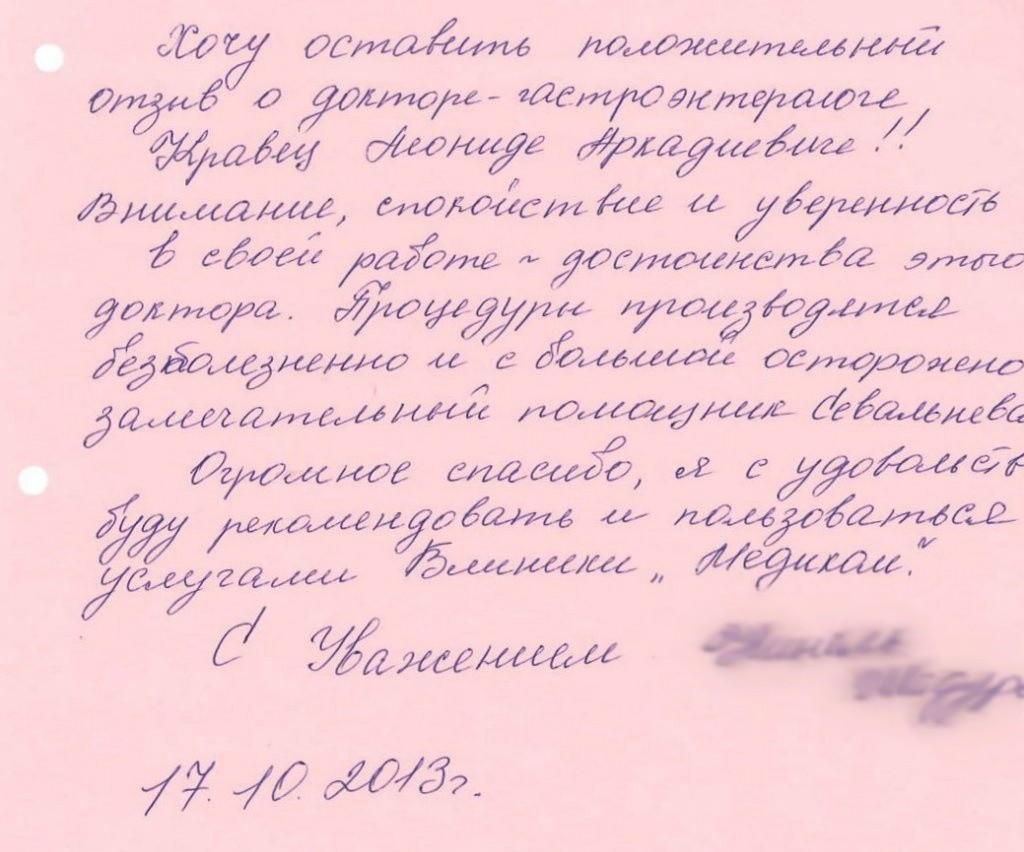 Хочу оставить положительный
отзыв о докторе-гастроэнтерологе
Кравец Леониде Аркадиевиче!!
Внимание, спокойствие и уверенность
в своей работе - достоинства этого
доктора. Процедуры производятся
безболезненно и с большой осторожно
замечательный помощник Севальнева
Огромное спасибо, я с удовольств
буду рекомендовать и пользоваться
услугами Клиники „Медиком".
С Уважением
17.10.2013г.